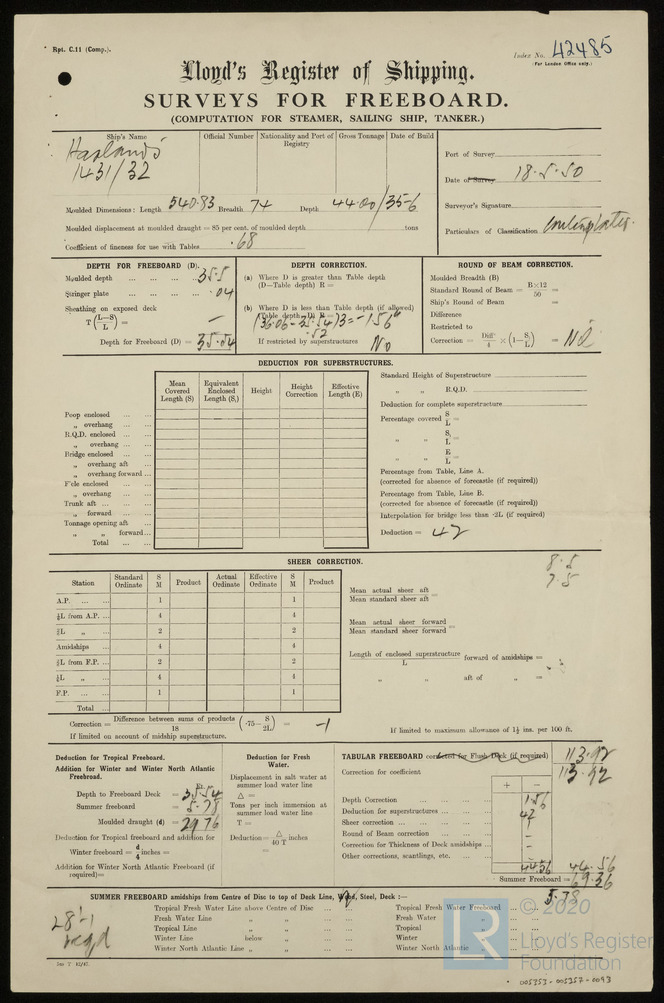 Rpt. C.11 (Comp.).
Index No. 42485
(For London Office only.)
Lloyd's Register of Shipping.
SURVEYS FOR FREEBOARD.
(COMPUTATION FOR STEAMER, SAILING SHIP, TANKER.)
Ship's Name
Official Number
Nationality and Port of Registry
Gross Tonnage
Date of Build
1431/32
Port of Survey
Date of Survey 18.5.50
Surveyor's Signature
Particulars of Classification
Moulded Dimensions: Length 540.83 Breadth 74 Depth 44.00/35-6
Moulded displacement at moulded draught = 85 per cent. of moulded depth tons
Coefficient of fineness for use with Tables .68
DEPTH FOR FREEBOARD (D).
Moulded depth ... 35.5
Stringer plate ... .04
Sheathing on exposed deck
T (L—S/L) = —
Depth for Freeboard (D) = 35.54
DEPTH CORRECTION.
(a) Where D is greater than Table depth
(D—Table depth) R =
(b) Where D is less than Table depth (if allowed)
(Table depth—D) R =
(36.06 - 35.54) 3 = -1.56
.52
If restricted by superstructures No
ROUND OF BEAM CORRECTION.
Moulded Breadth (B)
Standard Round of Beam = B×12/50 =
Ship's Round of Beam =
Difference
Restricted to
Correction = Diffce/4 × (1—S₁/L) = Nil
DEDUCTION FOR SUPERSTRUCTURES.
Mean Covered Length (S)
Equivalent Enclosed Length (S₁)
Height
Height Correction
Effective Length (E)
Poop enclosed ...
„ overhang ...
R.Q.D. enclosed ...
„ overhang ...
Bridge enclosed ...
„ overhang aft
„ overhang forward ...
F'cle enclosed ...
„ overhang ...
Trunk aft ...
„ forward ...
Tonnage opening aft
„ „ forward...
Total ...
Standard Height of Superstructure
„ „ R.Q.D.
Deduction for complete superstructure
Percentage covered S/L =
„ „ S₁/L =
„ „ E/L =
Percentage from Table, Line A.
(corrected for absence of forecastle (if required))
Percentage from Table, Line B.
(corrected for absence of forecastle (if required))
Interpolation for bridge less than ·2L (if required)
Deduction = 42
SHEER CORRECTION.
8.5
7.5
Station
Standard Ordinate
S M
Product
Actual Ordinate
Effective Ordinate
S M
Product
A.P. ... 1 1
⅙L from A.P. ... 4 4
⅓L „ 2 2
Amidships ... 4 4
⅓L from F.P. ... 2 2
⅙L „ 4 4
F.P. ... 1 1
Total ...
Mean actual sheer aft
Mean standard sheer aft =
Mean actual sheer forward
Mean standard sheer forward =
Length of enclosed superstructure/L forward of amidships =
„ „ aft of „ =
Correction = Difference between sums of products/18 (·75—S/2L) = -1
If limited on account of midship superstructure.
If limited to maximum allowance of 1½ ins. per 100 ft.
Deduction for Tropical Freeboard.
Addition for Winter and Winter North Atlantic Freeboard.
Depth to Freeboard Deck = 35.54
Summer freeboard = 5.78
Moulded draught (d) = 29.76
Deduction for Tropical freeboard and addition for
Winter freeboard = d/4 inches =
Addition for Winter North Atlantic Freeboard (if required)=
Deduction for Fresh Water.
Displacement in salt water at summer load water line
Δ =
Tons per inch immersion at summer load water line
T =
Deduction= Δ/40 T inches
=
TABULAR FREEBOARD corrected for Flush Deck (if required) 113.92
Correction for coefficient 113.92
+ -
Depth Correction ... 1.56
Deduction for superstructures ... 42
Sheer correction ... 1
Round of Beam correction ... -
Correction for Thickness of Deck amidships ... -
Other corrections, scantlings, etc. ...
44.56 44.56
Summer Freeboard = 69.36
5.78
SUMMER FREEBOARD amidships from Centre of Disc to top of Deck Line, Wood, Steel, Deck:—
28'-1
reqd
Tropical Fresh Water Line above Centre of Disc ...
Fresh Water Line „ „ ...
Tropical Line „ „ ...
Winter Line below „ ...
Winter North Atlantic Line „ „ ...
Tropical Fresh Water Freeboard
Fresh Water „
Tropical „
Winter „
Winter North Atlantic „
LR
© 2020
Lloyd's Register
Foundation
005353-005357-0093